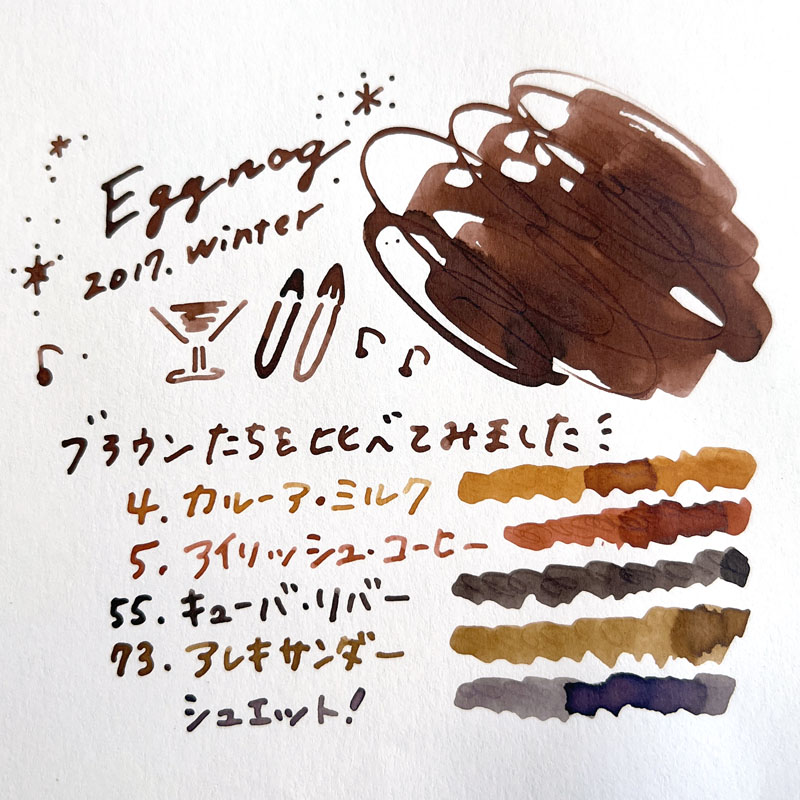 Eggnog
2017. winter
ブラウンたちを比べてみました
4. カルーア・ミルク
5. アイリッシュ・コーヒー
55. キューバ・リバー
73. アレキサンダー
シュエット!